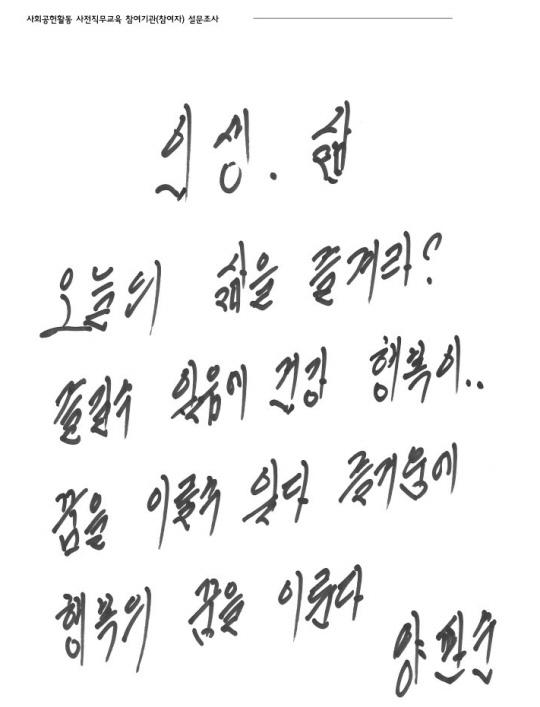 사회공헌활동 사전직무교육 참여기관(참여자) 설문조사
인생. 삶
오늘의 삶을 즐겨라?
즐길수 있음에 건강 행복이..
꿈을 이룰수 있다 즐거움에
행복의 꿈을 이룬다
양판순